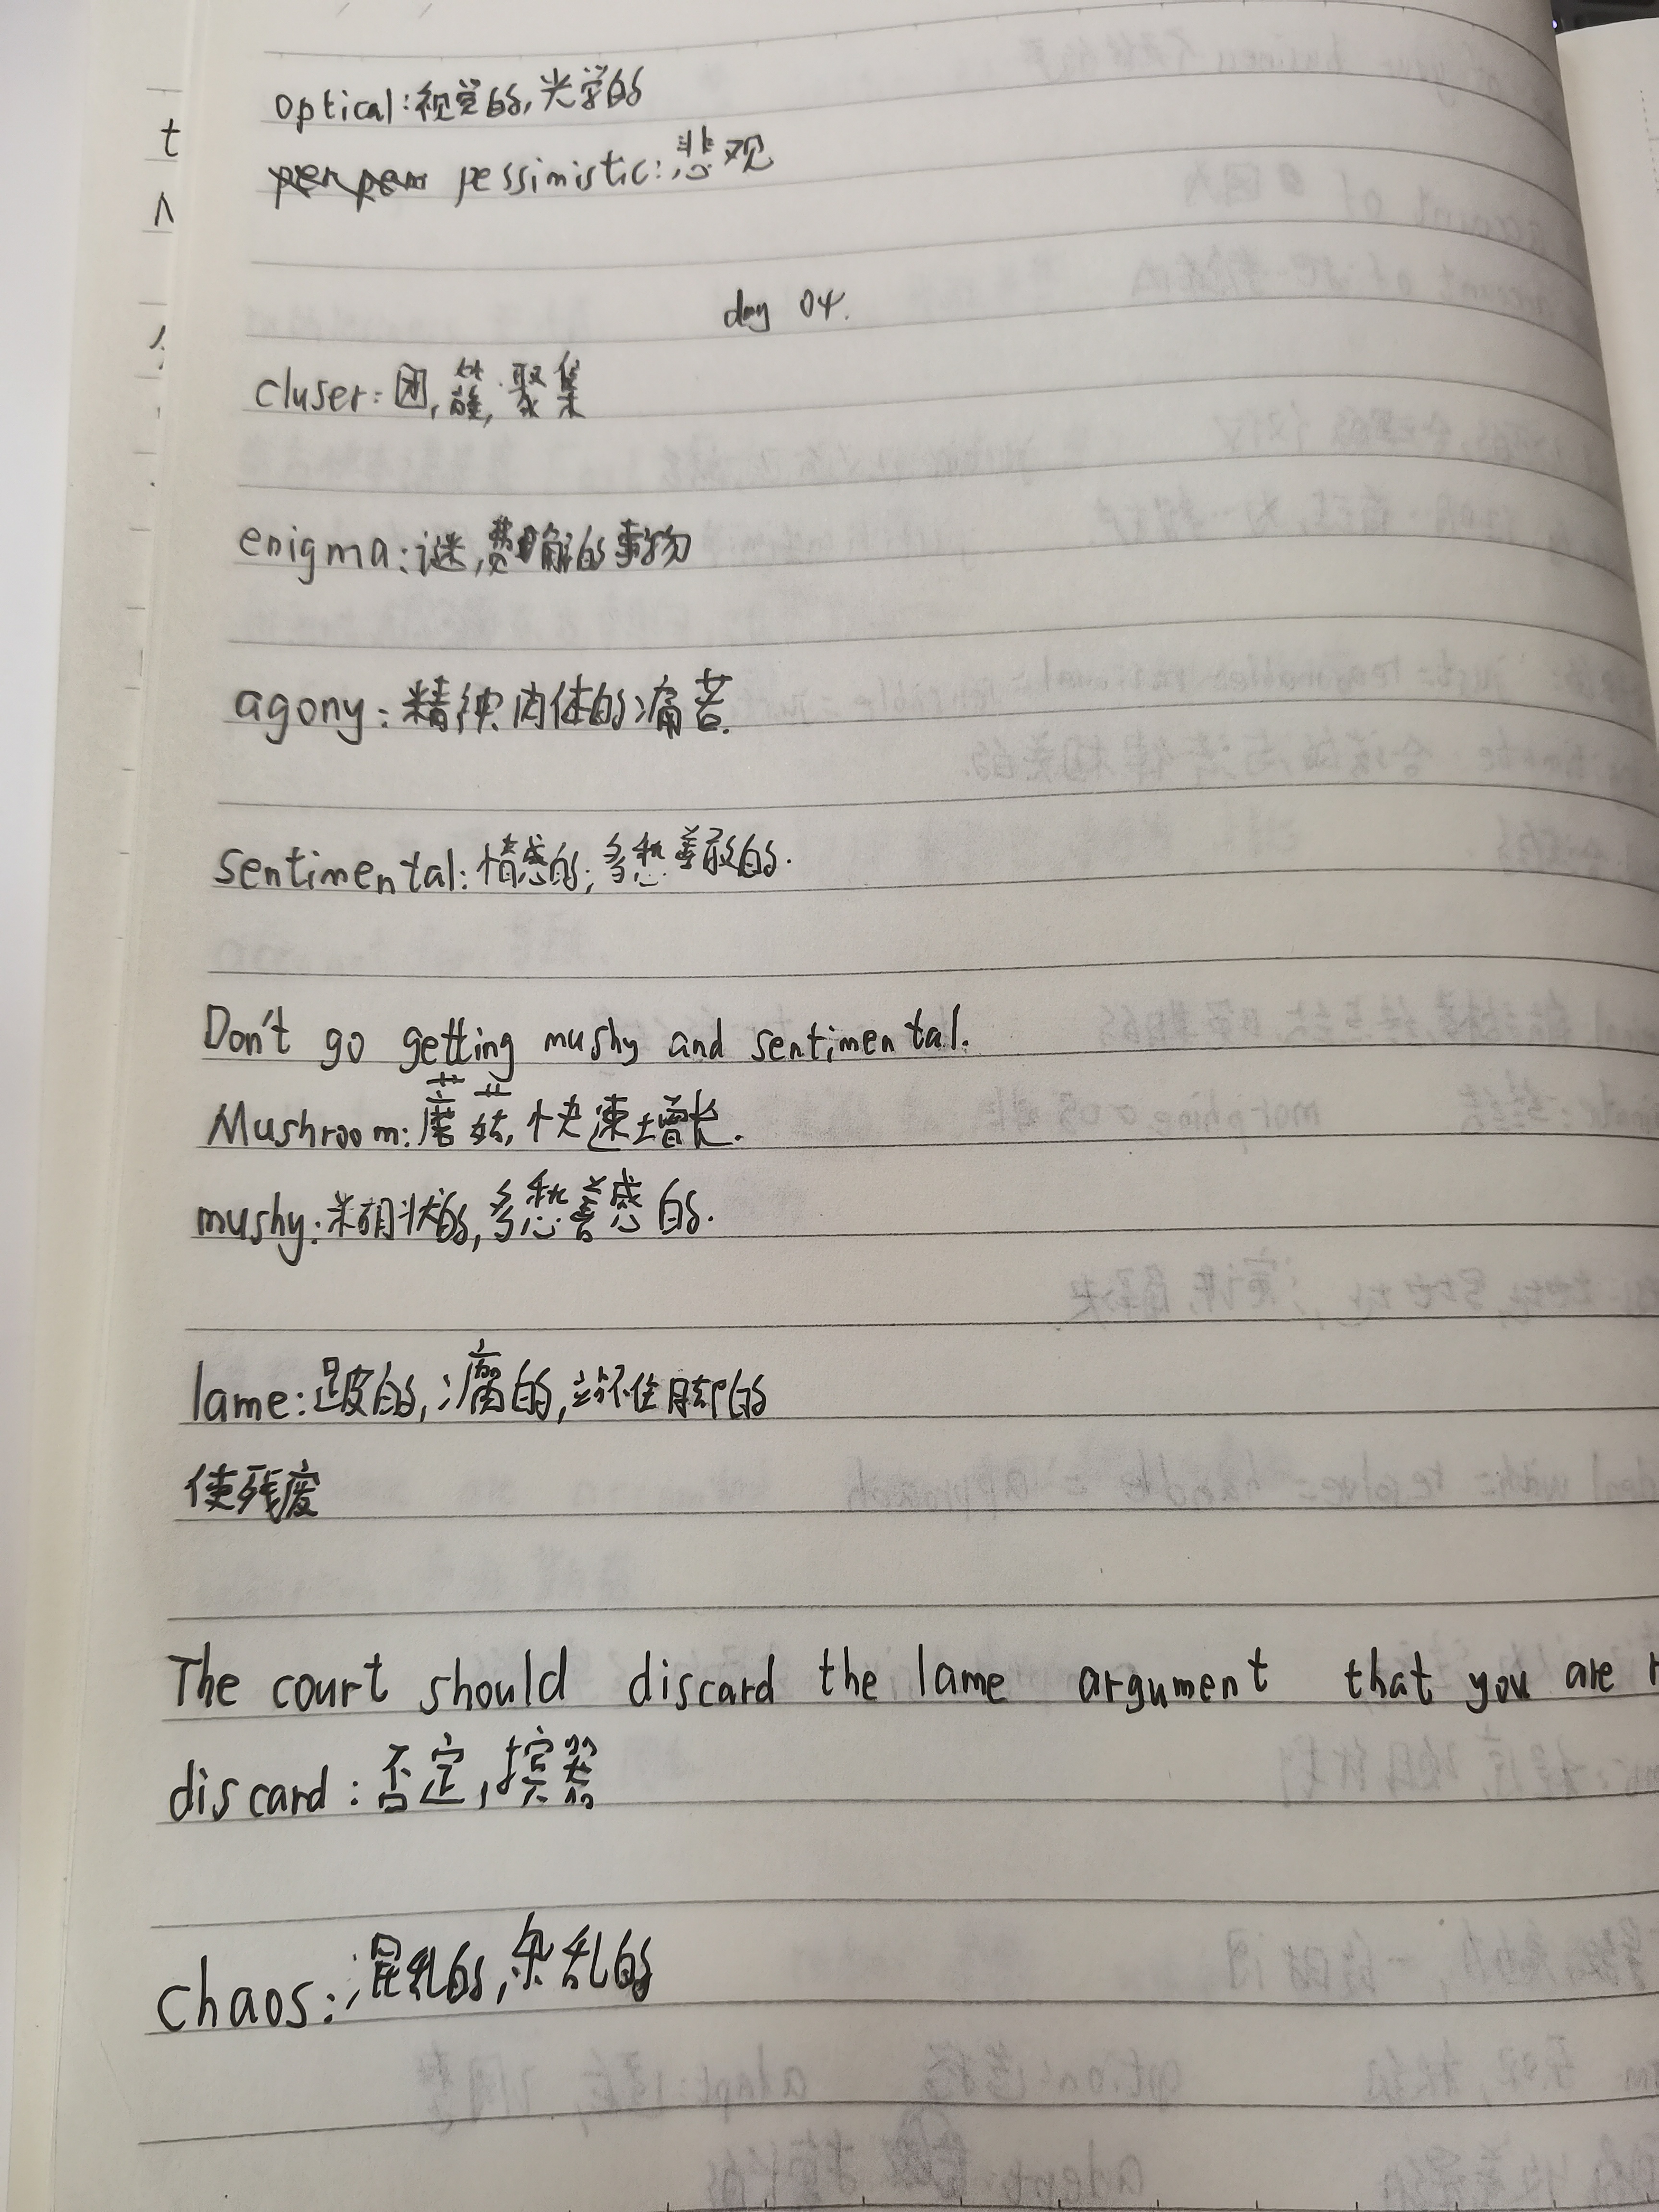 optical:视觉的,光学的
pessimistic:悲观
day 04.
cluser:团,簇,聚集
enigma:谜,费解的事物
agony:精神,肉体的痛苦.
sentimental:情感的;多愁善感的.
Don't go getting mushy and sentimental.
Mushroom:蘑菇,快速增长.
mushy:糊状的,多愁善感的.
lame:跛的,的,站不住脚的
使残废
The court should discard the lame argument that you are
discard:否定,
chaos:混乱的,杂乱的